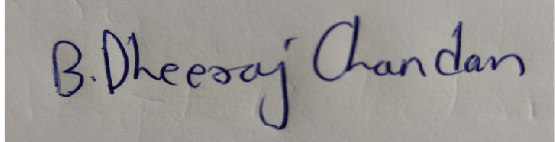 B. Dheeraj Chandan